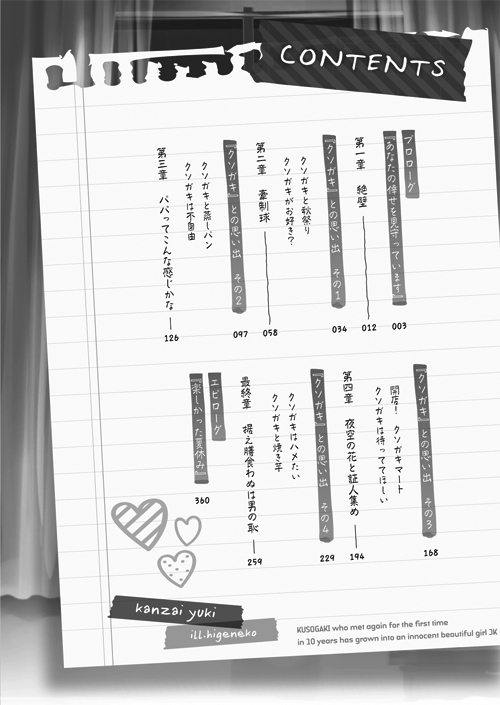 CONTENTS
プロローグ
『あなたの倖せを見守っています』
003
第一章 絶壁
012
『クソガキ』との思い出 その1
034
クソガキと秋祭り
クソガキがお好き?
第二章 豪制球
058
『クソガキ』との思い出 その2
097
クソガキと蒸しパン
クソガキは不自由
第三章 パパってこんな感じかな
126
『クソガキ』との思い出 その3
168
開店! クソガキマート
クソガキは待っててほしい
第四章 夜空の花と証人集め
194
『クソガキ』との思い出 その4
229
クソガキはハメたい
クソガキと焼き芋
最終章 据え膳食わぬは男の恥
259
エピローグ
『楽しかった夏休み』
360
kanzai yuki
ill.higeneko
KUSOGAKI who met again for the first time
in 10 years has grown into an innocent beautiful girl JK